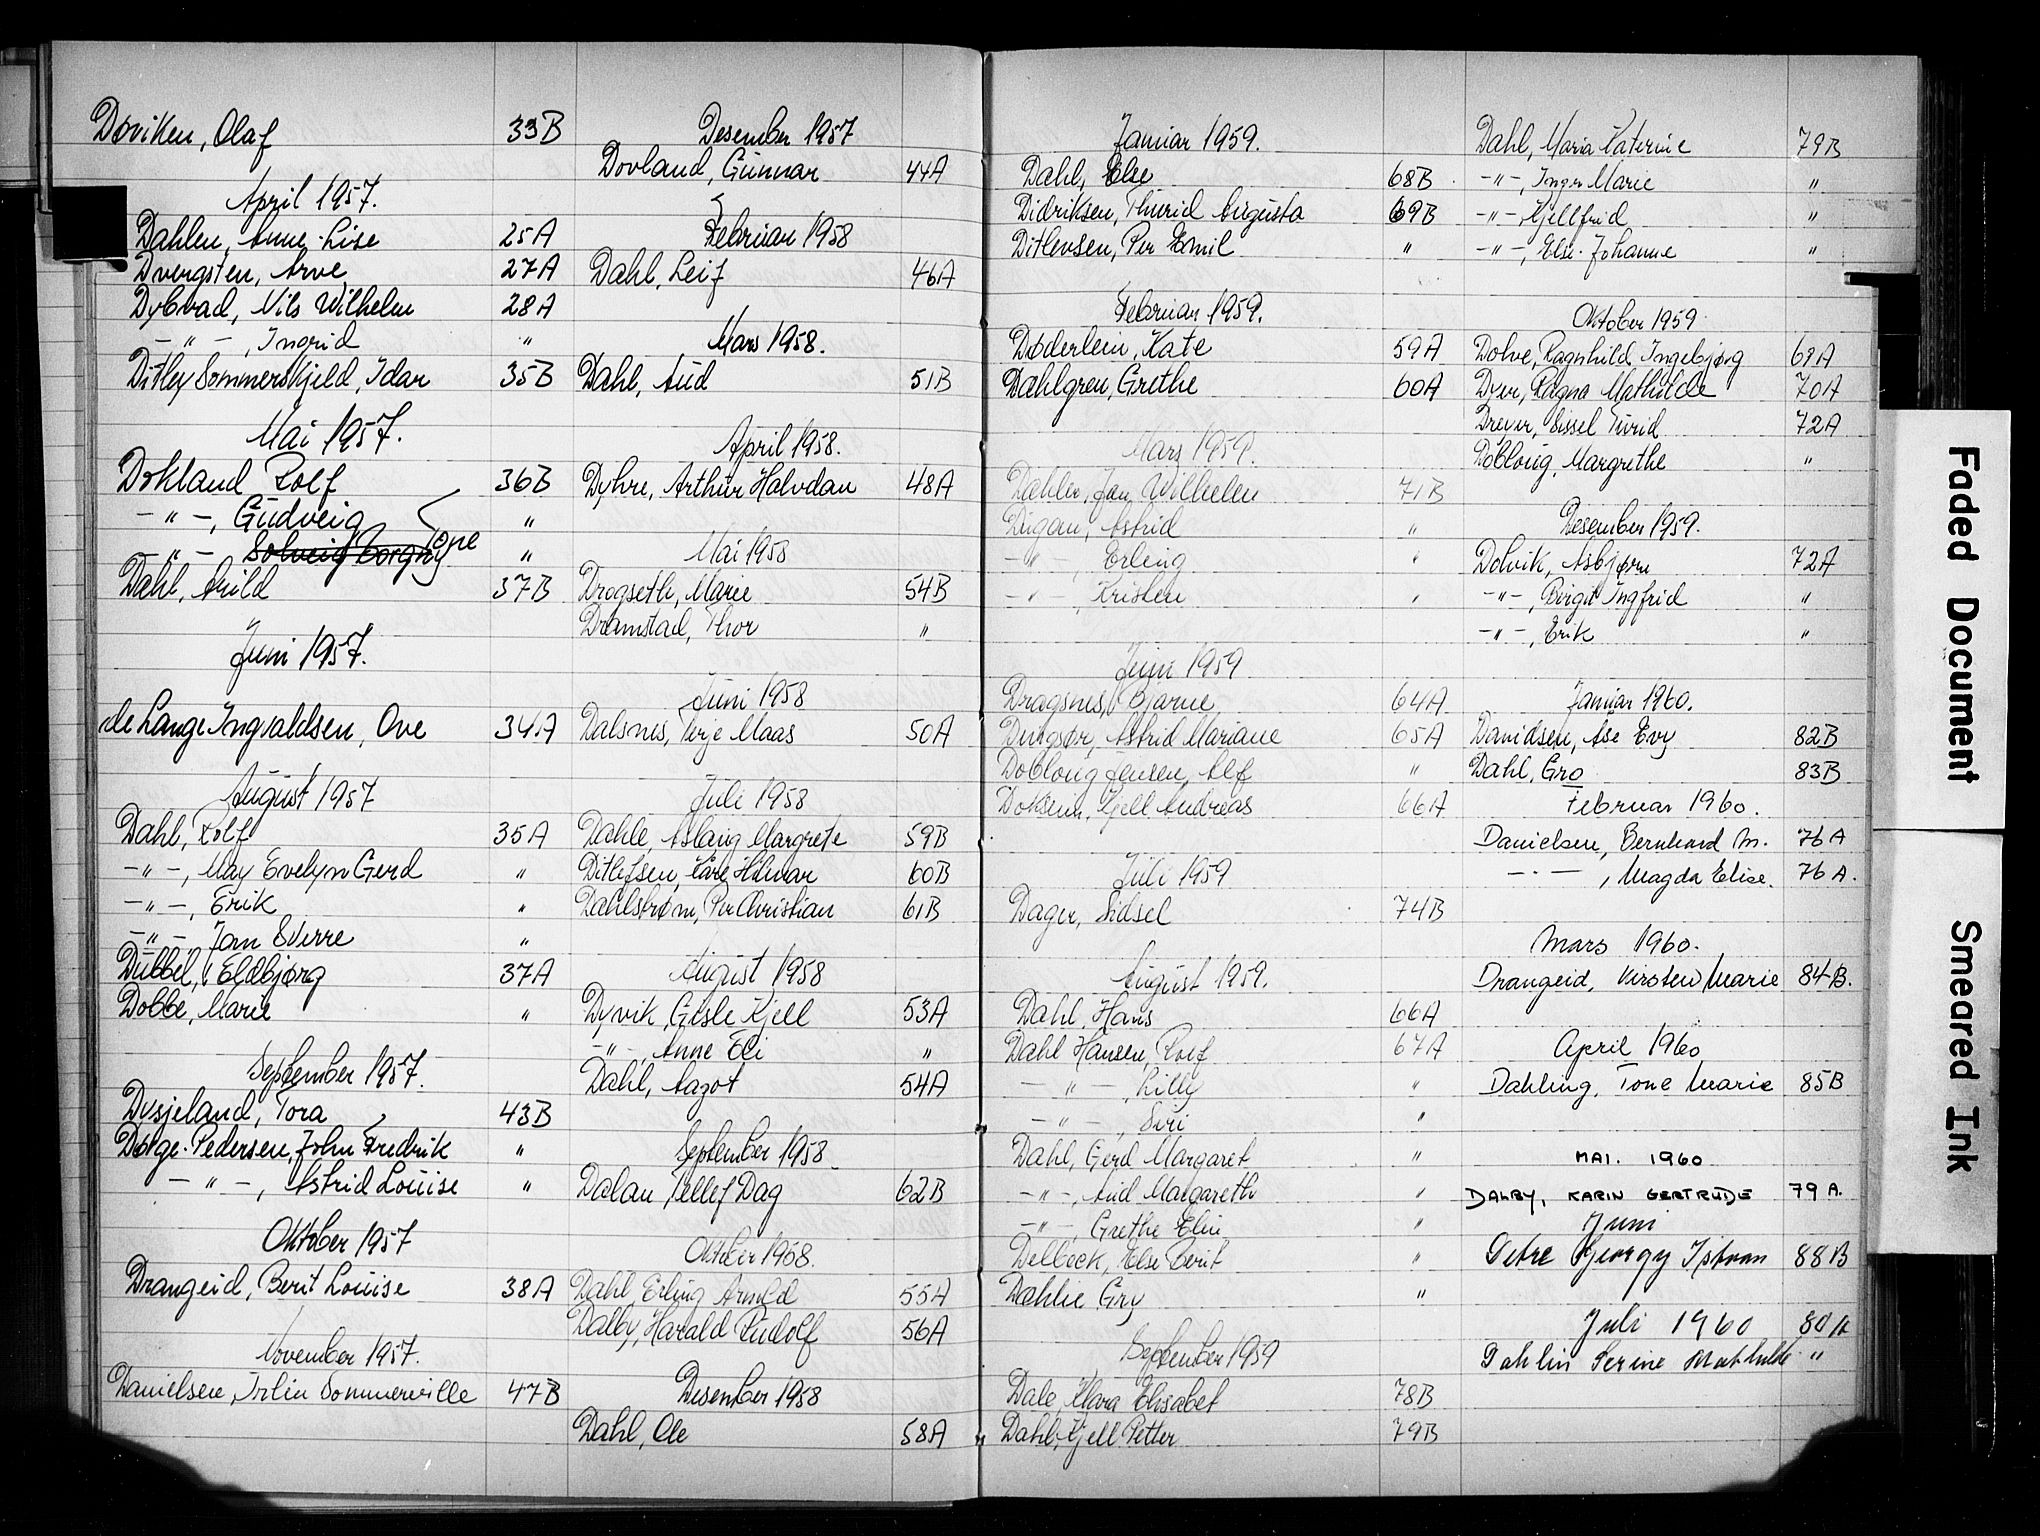 Døviken, Olaf 33B
April 1957.
Dahlen, Anne-Lise 25A
Dvergsten, Arve 27A
Dybvad, Nils Wilhelm 28A
-"-, Ingrid "
Ditlev Sommerskjeld, Idar 35B
Mai 1957.
Dokland Rolf 36B
-"-, Gudveig "
-"- Solveig Borgny Tone "
Dahl, Arild 37B
Juni 1957.
de Lange Ingvaldsen, Ove 34A
August 1957
Dahl, Rolf 35A
-"-, May Evelyn Gerd "
-"-, Erik "
-"- Jan Sverre "
Dübbel, Eldbjørg 37A
Dobbe, Marie "
September 1957.
Dysjeland, Tora 43B
Dørge-Pedersen, John Fredrik "
-"-, Astrid Louise "
Oktober 1957
Drangeid, Berit Louise 38A
November 1957.
Danielsen, Irlin Sommerville 47B
Desember 1957
Dovland, Gunnar 44A
Februar 1958
Dahl, Leif 46A
Mars 1958.
Dahl, Aud 51B
April 1958.
Dyhre, Arthur Halvdan 48A
Mai 1958
Drogseth, Marie 54B
Dramstad, Thor "
Juni 1958
Dalsnes, Terje Maas 50A
Juli 1958
Dahle, Aslaug Margrete 59B
Ditlefsen, Kåre Hilmar 60B
Dahlstrøm, Per Christian 61B
August 1958
Dyvik, Gisle Kjell 53A
-"-, Anne Eli "
Dahl, Aagot 54A
September 1958
Dalan, Tellef Dag 62B
Oktober 1958.
Dahl, Erling Arnold 55A
Dalby, Harald Rudolf 56A
Desember 1958
Dahl, Ole 58A
Januar 1959.
Dahl, Else 68B
Didriksen, Thurid Augusta 69B
Ditlevsen, Per Emil "
Februar 1959.
Døderlein, Kate 59A
Dahlgren, Grethe 60A
Mars 1959.
Dahler, Jan Wilhelm 71B
Dugan, Astrid "
-"-, Erling "
-"-, Kristen "
Juni 1959
Dragsnes, Bjarne 64A
Dingsør, Astrid Mariane 65A
Dobloug Jensen, Alf "
Doksein, Kjell Andreas 66A
Juli 1959
Dager, Sidsel 74B
August 1959.
Dahl, Hans 66A
Dahl Hansen, Rolf 67A
-"-, Lilly "
-"-, Siri "
Dahl, Gerd Margaret "
-"-, Aud Margareth "
-"-, Grethe Elin "
Delbeck, Else Berit "
Dæhlie Gry "
September 1959
Dale, Klara Elisabet 78B
Dahl, Kjell Petter 79B
Dahl, Maria Katerine 79B
-"-, Inger Marie "
-"-, Kjellfrid "
-"-, Else-Johanne "
Oktober 1959
Dolve, Ragnhild Ingebjørg 69A
Dyer, Ragna Mathilde 70A
Drever, Sissel Turid 72A
Dobloug, Margrethe "
Desember 1959.
Dolvik, Asbjørn 72A
-"-, Birgit Ingfrid "
-"-, Erik "
Januar 1960.
Davidsen, Åse Evy 82B
Dahl, Gro 83B
Februar 1960.
Danielsen, Bernhard M. 76A
-"-, Magda Elise. 76A.
Mars 1960.
Drangeid, Kirsten Marie 84B.
April 1960
Dahling, Tone Marie 85B
MAI. 1960
DALBY, KARIN GERTRUDE 79A.
Juni
Detre Gyorgy Istvan 88B
Juli 1960 80A
Dahlin Serine Mathilde "
Faded Document
Smeared Ink